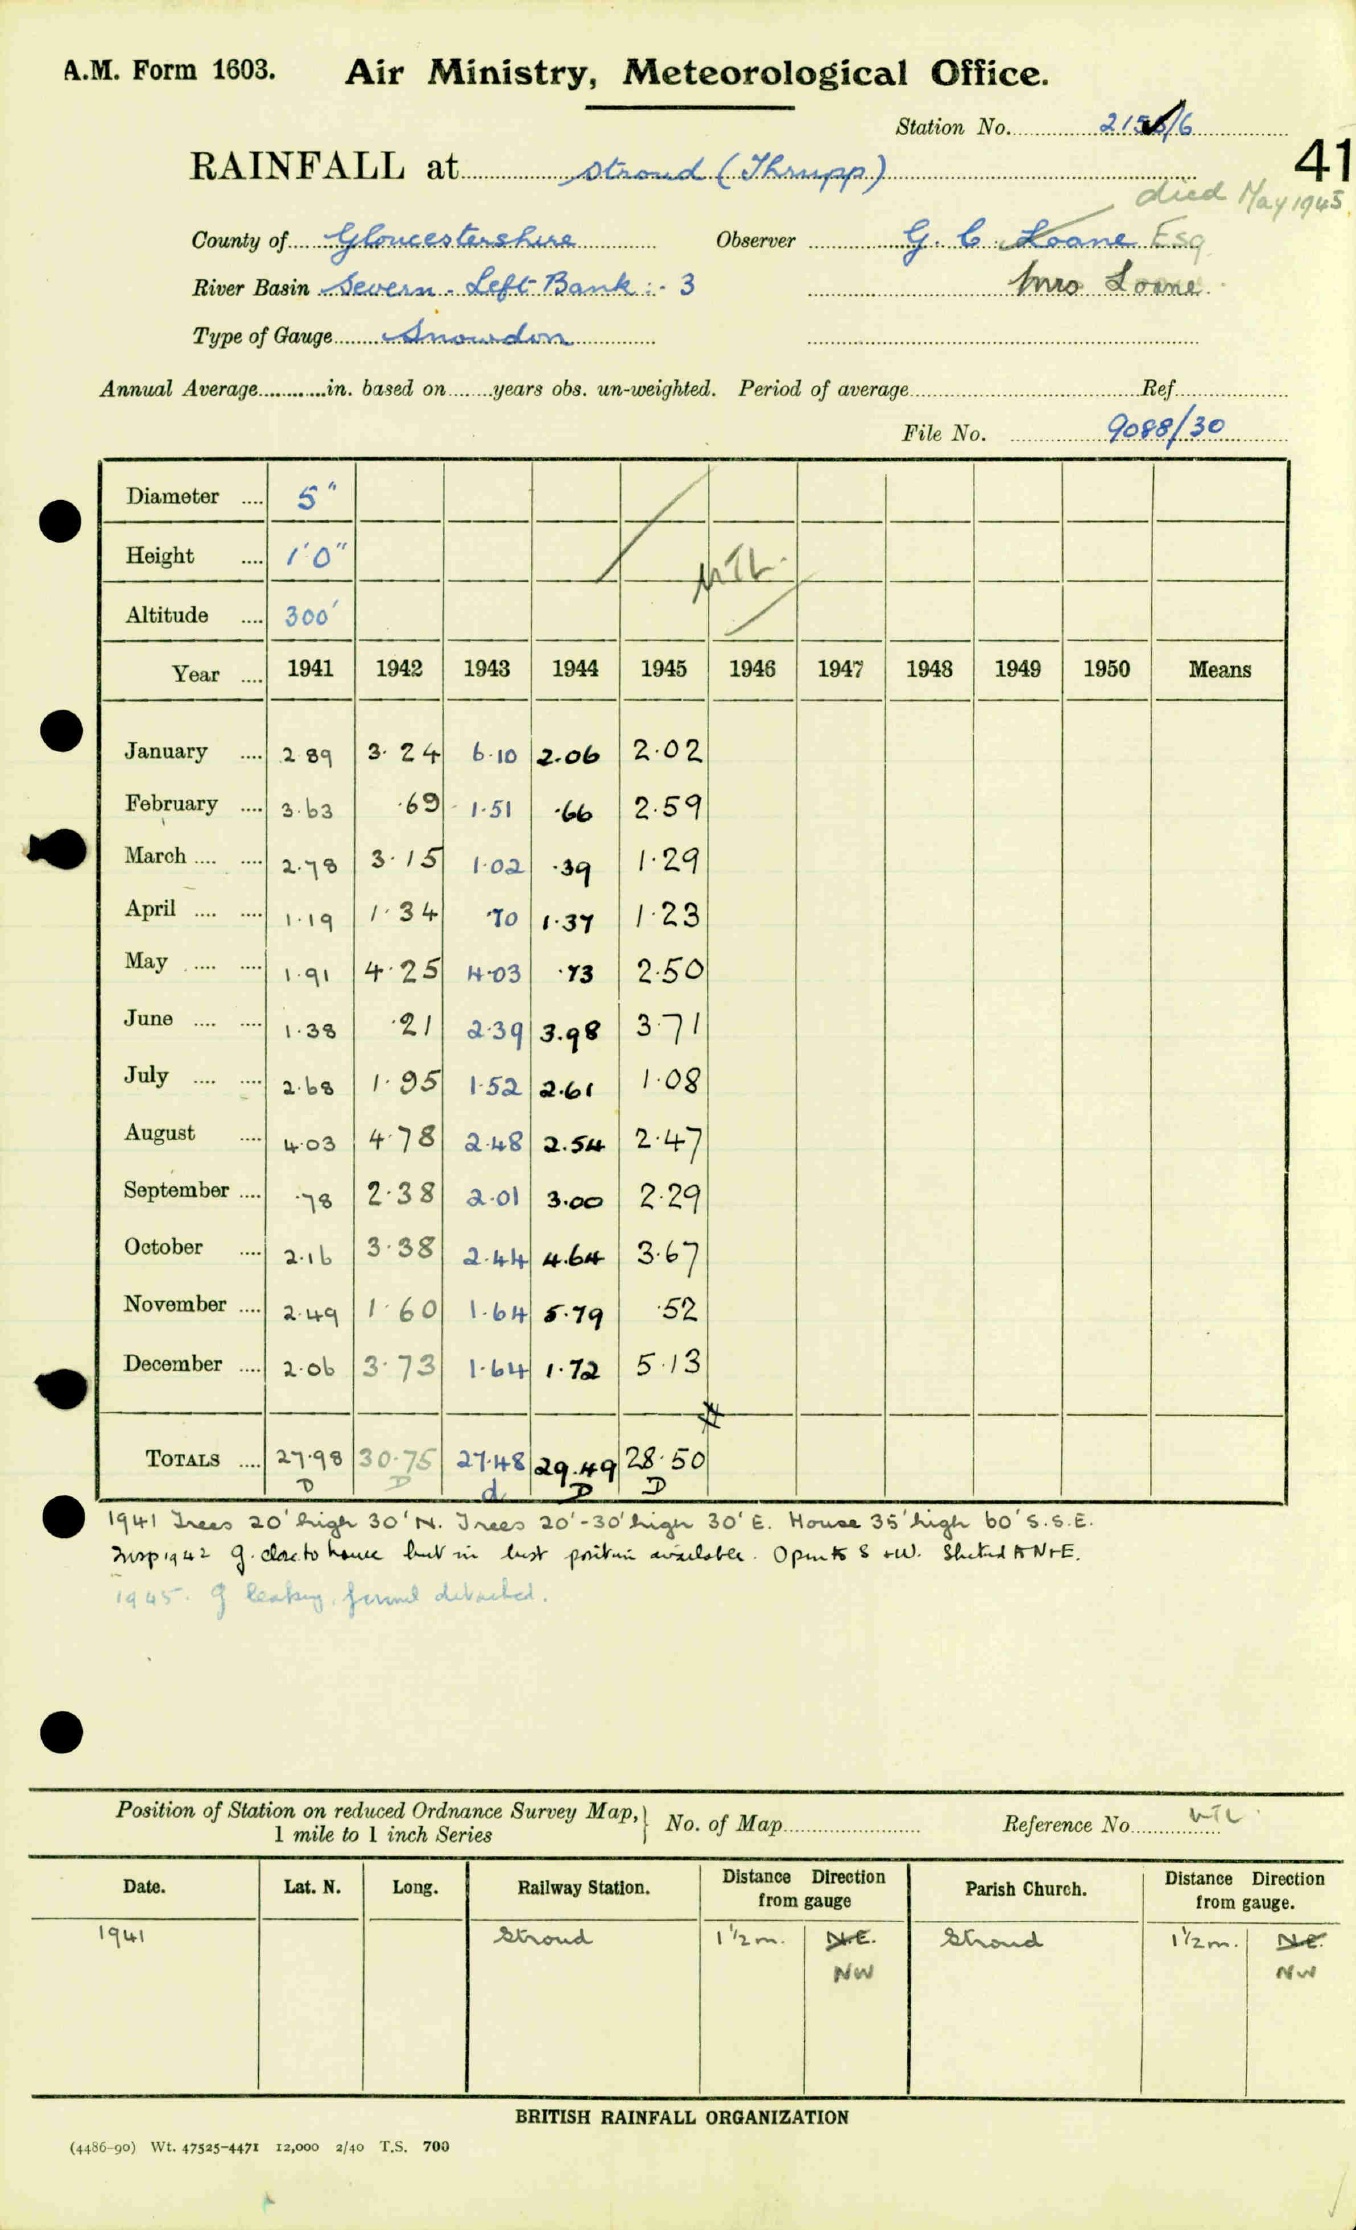 A.M. Form 1603. Air Ministry, Meteorological Office.
Station No. /6
41
RAINFALL at Stroud (Thrupp)
died May 1945
County of Gloucestershire Observer G. C. Loane Esq
River Basin Severn - Left Bank :- 3 Mrs Loane
Type of Gauge Snowdon
Annual Average in. based on years obs. un-weighted. Period of average Ref
File No. 9088/30
Diameter 5"
Height 1'0"
Altitude 300'
Year 1941 1942 1943 1944 1945 1946 1947 1948 1949 1950 Means
January 2.89 3.24 6.10 2.06 2.02
February 3.63 .69 1.51 .66 2.59
March 2.78 3.15 1.02 .39 1.29
April 1.19 1.34 .70 1.37 1.23
May 1.91 4.25 4.03 .73 2.50
June 1.38 .21 2.39 3.98 3.71
July 2.68 1.95 1.52 2.61 1.08
August 4.03 4.78 2.48 2.54 2.47
September .78 2.38 2.01 3.00 2.29
October 2.16 3.38 2.44 4.64 3.67
November 2.49 1.60 1.64 5.79 .52
December 2.06 3.73 1.64 1.72 5.13
TOTALS 27.98 30.75 27.48 29.49 28.50
D D d D D
1941 Trees 20' high 30' N. Trees 20'-30' high 30' E. House 35' high 60' S.S.E.
Insp 1942 g. close to house but in best position available. Open to S +W. Shelted to N+E.
1945. g leaking, funnel detached.
Position of Station on reduced Ordnance Survey Map, 1 mile to 1 inch Series No. of Map Reference No
Date. Lat. N. Long. Railway Station. Distance Direction from gauge Parish Church. Distance Direction from gauge.
1941 Stroud 1½m. N.E. Stroud 1½m. N.E.
NW NW
BRITISH RAINFALL ORGANIZATION
(4486-90) Wt. 47525-4471 12,000 2/40 T.S. 700